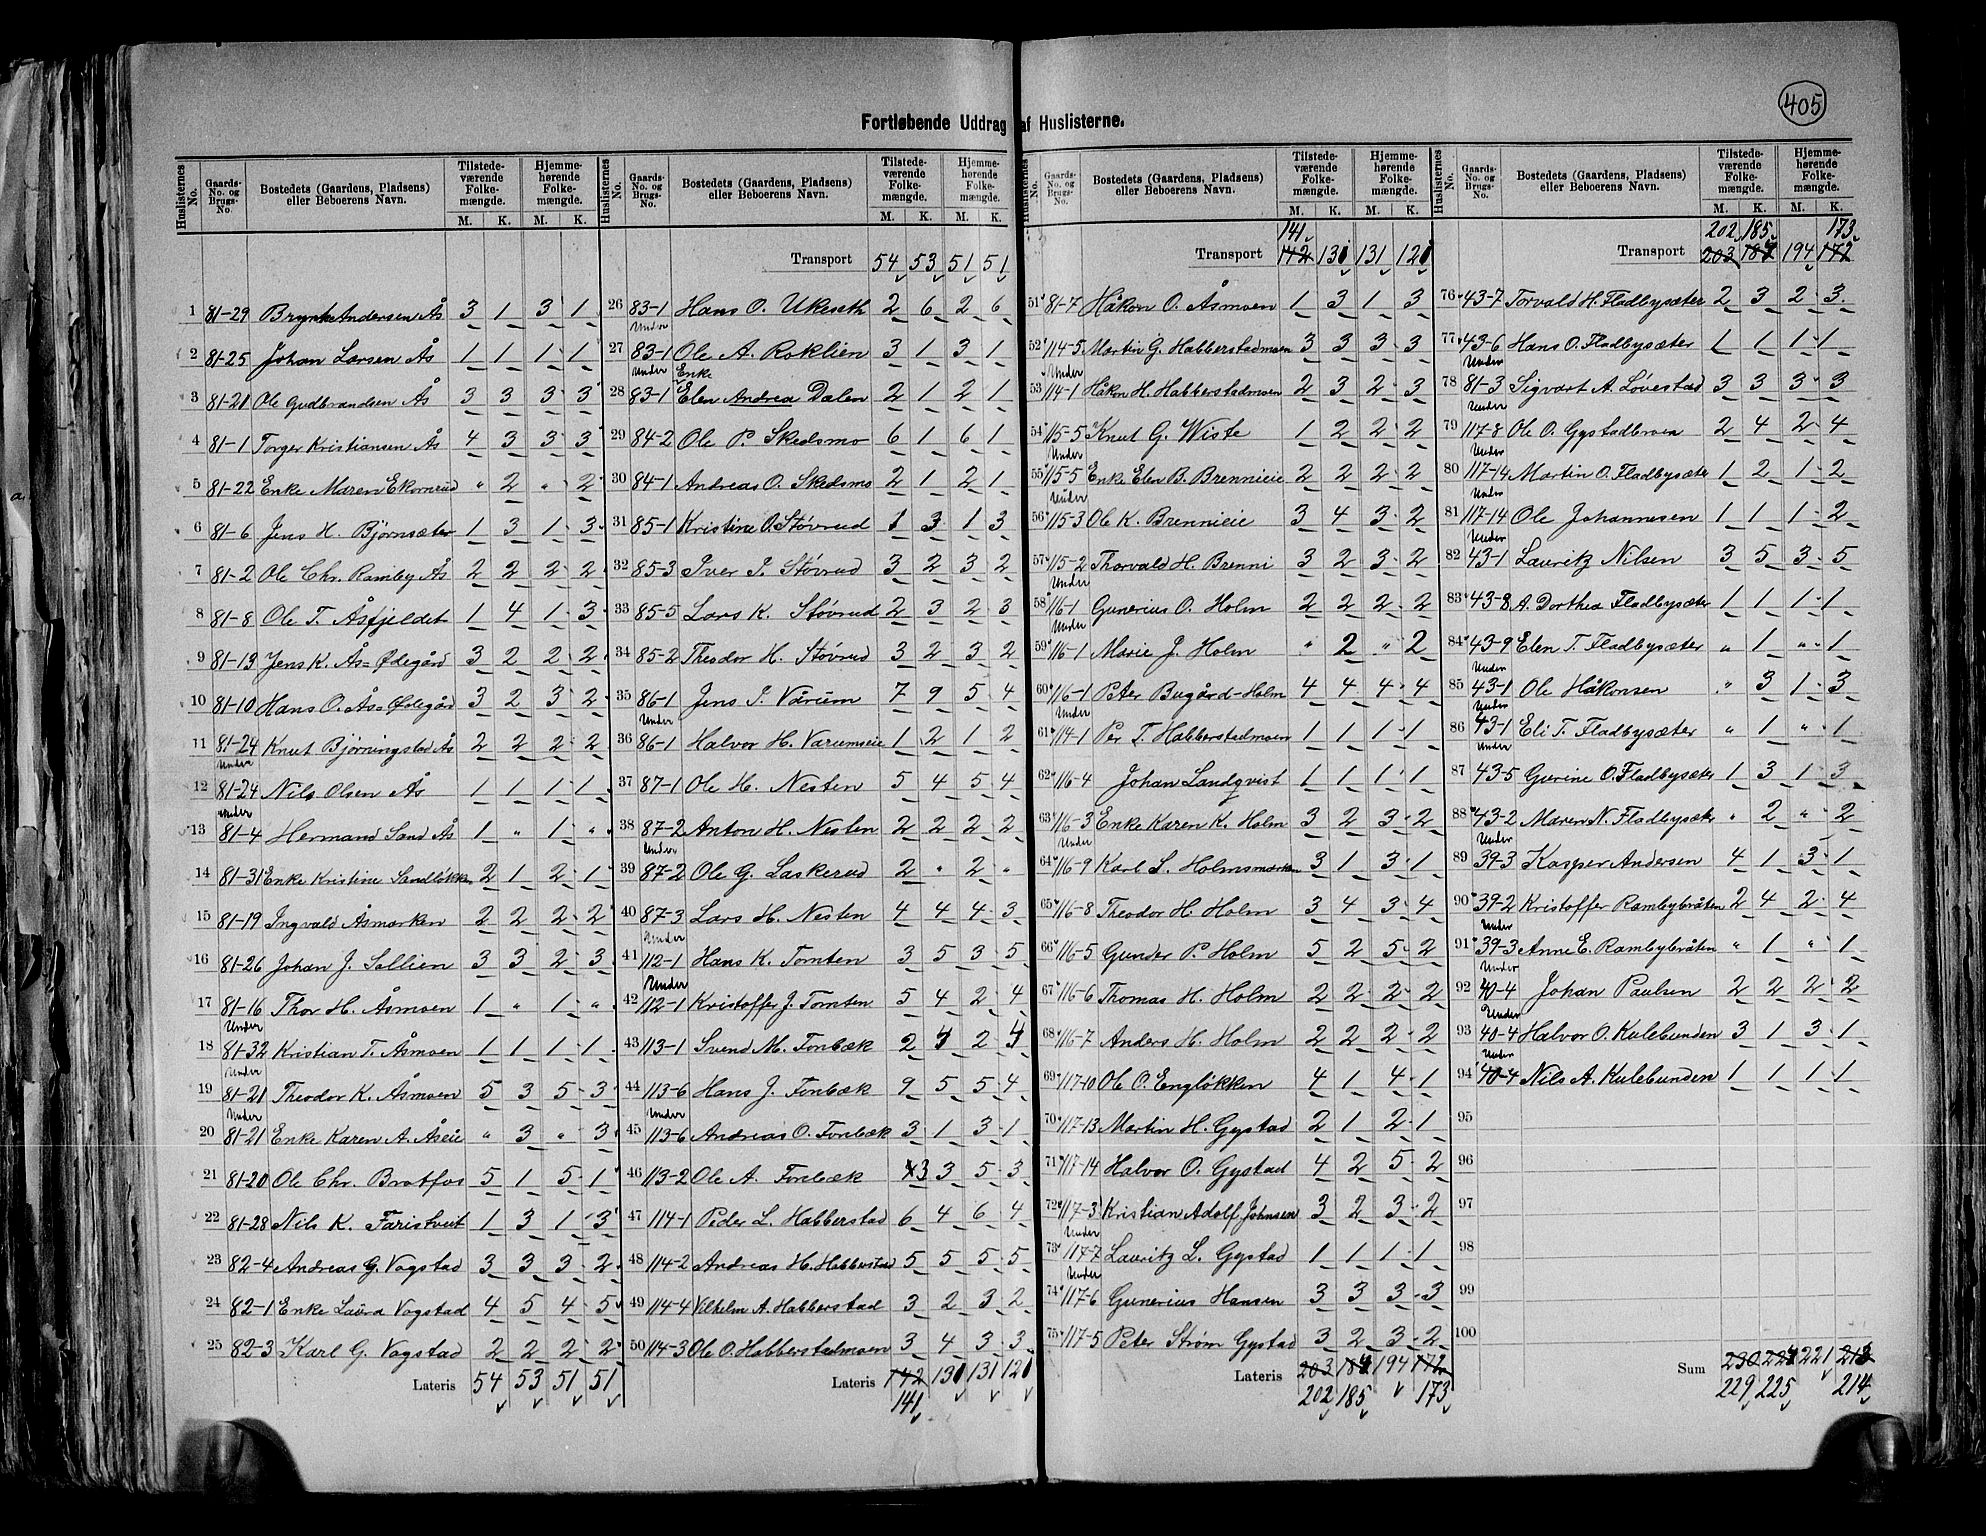 405
Fortløbende Uddrag af Huslisterne.
Huslisternes No. Gaards-No. og Brugs-No. Bostedets (Gaardens, Pladsens) eller Beboerens Navn. Tilstedeværende Folkemængde. M. K. Hjemmehørende Folkemængde. M. K.
1 81-29 Andersen Ås 3 1 3 1
2 81-25 Johan Larsen Ås 1 1 1 1
3 81-21 Ole Gudbrandsen Ås 3 3 3 3
4 81-1 Torger Kristiansen Ås 4 3 3 3
5 81-22 Enke Maren Ekornrud " 2 " 2
6 81-6 Jens H. Bjørnsæter 1 3 1 3
7 81-2 Ole Chr. Ramby Ås 2 2 2 2
8 81-8 Ole T. Åsfjeldet 1 4 1 3
9 81-13 Jens K. Ås=Ødegård 3 2 2 2
10 81-10 Hans O. Ås=Ødegård 3 2 3 2
11 81-24 Knut Bjørningstad Ås 2 2 2 2
Under
12 81-24 Nils Olsen Ås 1 1 1 1
Under
13 81-4 Hermand Sand Ås 1 " 1 "
14 81-31 Enke Kristine Sandløkken 2 1 2 1
15 81-19 Ingvald Åsmarken 2 2 2 2
16 81-26 Johan J. Sollien 3 3 2 3
17 81-16 Thor H. Åsmoen 1 " 1 "
Under
18 81-32 Kristian T. Åsmoen 1 1 1 1
Under
19 81-21 Theodor K. Åsmoen 5 3 5 3
Under
20 81-21 Enke Karen A. Åseie " 3 " 3
21 81-20 Ole Chr. Bratfos 5 1 5 1
22 81-28 Nils K. Faristveit 1 3 1 3
23 82-4 Andreas G. Vogstad 3 3 3 2
24 82-1 Enke Laura Vogstad 4 5 4 5
25 82-3 Karl G. Vogstad 2 2 2 2
Lateris 54 53 51 51
Huslisternes No. Gaards-No. og Brugs-No. Bostedets (Gaardens, Pladsens) eller Beboerens Navn. Tilstedeværende Folkemængde. M. K. Hjemmehørende Folkemængde. M. K.
Transport 54 53 51 51
26 83-1 Hans O. Ukeseth 2 6 2 6
Under
27 83-1 Ole A. Roklien 3 1 3 1
Under Enke
28 83-1 Elen Andrea Dalen 2 1 2 1
29 84-2 Ole P. Skedsmo 6 1 6 1
30 84-1 Andreas O. Skedsmo 2 1 2 1
31 85-1 Kristine O. Støvrud 1 3 1 3
32 85-3 Iver I. Støvrud 3 2 3 2
33 85-5 Lars K. Støvrud 2 3 2 3
34 85-2 Theodor H. Støvrud 3 2 3 2
35 86-1 Jens I. Vårum 7 9 5 4
Under
36 86-1 Halvor H. Varumseie 1 2 1 2
37 87-1 Ole H. Nesten 5 4 5 4
38 87-2 Anton H. Nesten 2 2 2 2
Under
39 87-2 Ole G. Laskerud 2 " 2 "
40 87-3 Lars H. Nesten 4 4 4 3
Under
41 112-1 Hans K. Tomten 3 5 3 5
Under
42 112-1 Kristoffer J. Tomten 5 4 2 4
43 113-1 Svend M. Fonbæk 2 2
44 113-6 Hans J. Fonbæk 9 5 5 4
Under
45 113-6 Andreas O. Fonbæk 3 1 3 1
46 113-2 Ole A. Fonbæk 3 3 5 3
47 114-1 Peder L. Habberstad 6 4 6 4
48 114-2 Andreas H. Habberstad 5 5 5 5
49 114-4 Vilhelm A. Habberstad 3 2 3 2
50 114-3 Ole O. Habberstadmoen 3 4 3 3
Lateris 142 130 131 120
141
Huslisternes No. Gaards-No. og Brugs-No. Bostedets (Gaardens, Pladsens) eller Beboerens Navn. Tilstedeværende Folkemængde. M. K. Hjemmehørende Folkemængde. M. K.
141
Transport 142 130 131 120
51 81-7 Håkon O. Åsmoen 1 3 1 3
52 114-5 Martin G. Habberstadmoen 3 3 3 3
Under
53 114-1 Håkon H. Habberstadmoen 2 3 2 3
54 115-5 Knut G. Wiste 1 2 2 2
Under
55 115-5 Enke Elen B. Brennieie 2 2 2 2
Under
56 115-3 Ole K. Brennieie 3 4 3 2
57 115-2 Thorvald H. Brenni 3 2 3 2
Under
58 116-1 Gunerius O. Holm 2 2 2 2
Under
59 116-1 Marie J. Holm " 2 " 2
60 116-1 Peter Bugård-Holm 4 4 4 4
Under
61 114-1 Per T. Habberstadmoen 1 1 1 1
62 116-4 Johan Landqvist 1 1 1 1
63 116-3 Enke Karen K. Holm 3 2 3 2
Under
64 116-9 Karl L. Holmsmarken 3 1 3 1
65 116-8 Theodor H. Holm 3 4 3 4
66 116-5 Gunder P. Holm 5 2 5 2
67 116-6 Thomas H. Holm 2 2 2 2
68 116-7 Anders H. Holm 2 2 2 2
69 117-10 Ole O. Engløkken 4 1 4 1
70 117-13 Martin H. Gystad 2 1 2 1
71 117-14 Halvor O. Gystad 4 2 5 2
72 117-3 Kristian Adolf Johnsen 3 2 3 2
Under
73 117-7 Lauritz L. Gystad 1 1 1 1
Under
74 117-6 Gunerius Hansen 3 3 3 3
75 117-5 Peter Strøm Gystad 3 2 3 2
Lateris 203 184 194 172
202 185 173
Huslisternes No. Gaards-No. og Brugs-No. Bostedets (Gaardens, Pladsens) eller Beboerens Navn. Tilstedeværende Folkemængde. M. K. Hjemmehørende Folkemængde. M. K.
202 185 173
Transport 203 184 194 172
76 43-7 Torvald H. Fladbysæter 2 3 2 3
77 43-6 Hans O. Fladbysæter 1 1 1 1
Under
78 81-3 Sigvart A. Løvestad 3 3 3 3
Under
79 117-8 Ole O. Gystadbroen 2 4 2 4
Under
80 117-14 Martin O. Fladbysæter 1 2 1 2
Under
81 117-14 Ole Johannesen 1 1 1 2
Under
82 43-1 Lauritz Nilsen 3 5 3 5
83 43-8 A. Dorthea Fladbysæter 1 1 1 1
84 43-9 Elen T. Fladbysæter " 1 " 1
Under
85 43-1 Ole Håkonsen " 3 1 3
Under
86 43-1 Eli T. Fladbysæter " 1 " 1
Under
87 43-5 Gurine O. Fladbysæter 1 3 1 3
88 43-2 Maren N. Fladbysæter " 2 " 2
Under
89 39-3 Kasper Andersen 4 1 3 1
90 39-2 Kristoffer Rambybråten 2 4 2 4
Under
91 39-3 Anne E. Rambybråten " 1 " 1
Under
92 40-4 Johan Paulsen 2 2 2 2
Under
93 40-4 Halvor O. Kulebunden 3 1 3 1
Under
94 40-4 Nils A. Kulebunden 1 1 1 1
95
96
97
98
99
100
Sum 230 221 213
229 225 214